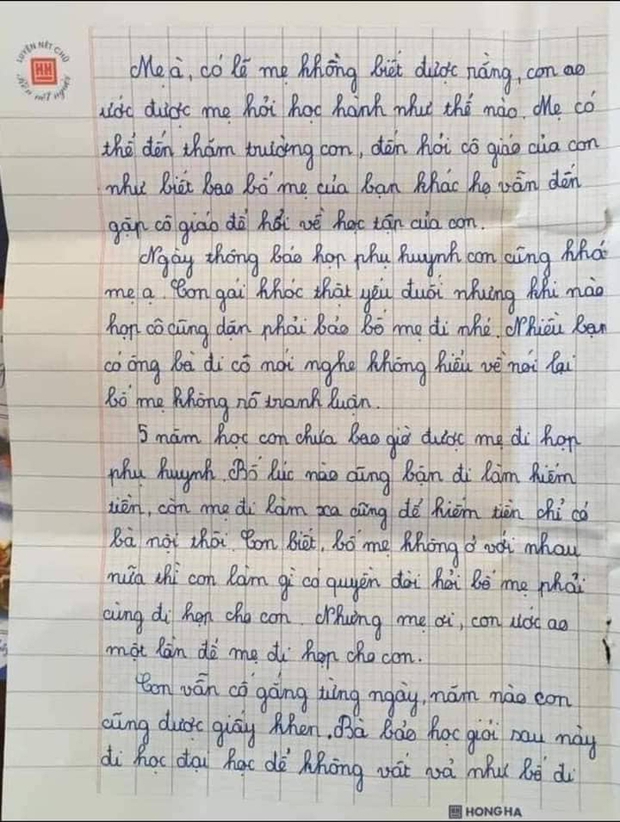 LUYỆN NÉT CHỮ
RÈN NẾT NGƯỜI
HH
Mẹ à, có lẽ mẹ không biết được rằng, con ao
ước được mẹ hỏi học hành như thế nào. Mẹ có
thể đến thăm trường con, đến hỏi cô giáo của con
như biết bao bố mẹ của bạn khác họ vẫn đến
gặp cô giáo để hỏi về học tận của con.
Ngày thông báo họp phụ huynh con cũng khó
mẹ ạ. Con gái khóc thật yếu đuối nhưng khi nào
họp cô cũng dặn phải bảo bố mẹ đi nhé. Nhiều bạn
có ông bà đi cô nói nghe không hiểu về nói lại
bố mẹ không rõ tranh luận.
5 năm học con chưa bao giờ được mẹ đi họp
phụ huynh. Bố lúc nào cũng bận đi làm kiếm
tiền, còn mẹ đi làm xa cũng để kiếm tiền chỉ có
bà nội thôi. Con biết, bố mẹ không ở với nhau
nữa thì con làm gì có quyền đòi hỏi bố mẹ phải
cùng đi họp cho con. Nhưng mẹ ơi, con ước ao
một lần để mẹ đi họp cho con.
Con vẫn cố gắng từng ngày, năm nào con
cũng được giấy khen. Bà bảo học giỏi sau này
đi học đại học để không vất vả như bố đi
HONG HA